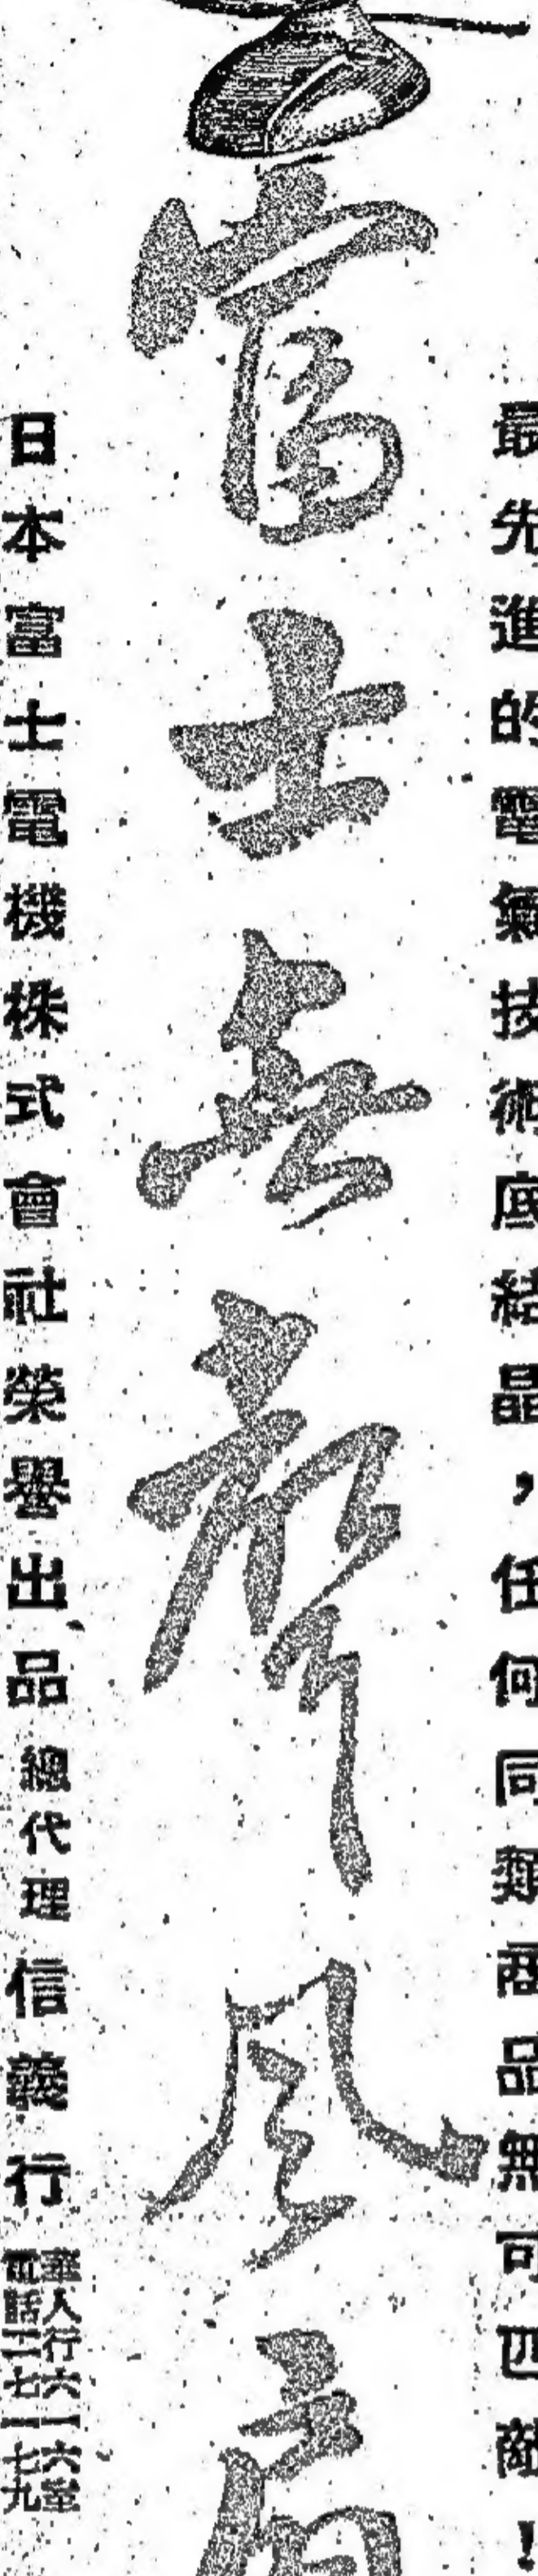 最先進的電氣技術底結晶，任何同類商品無可匹敵！
富士無聲風扇
日本富士電機株式會社榮譽出品總代理信義行
華人行六一六室
電話二七一七九